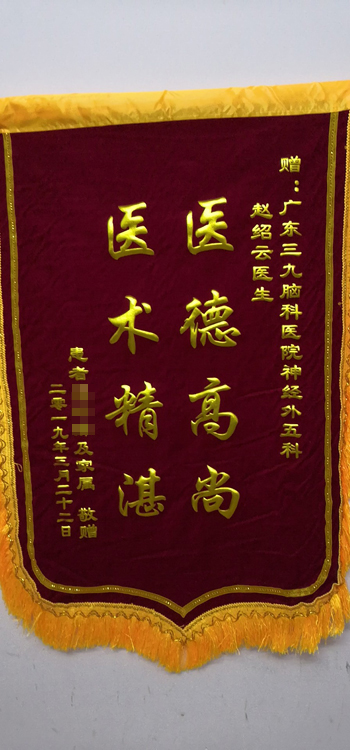 赠：广东三九脑科医院神经外五科
赵绍云医生
医德高尚
医术精湛
患者及家属 敬赠
二零一九年三月二十二日